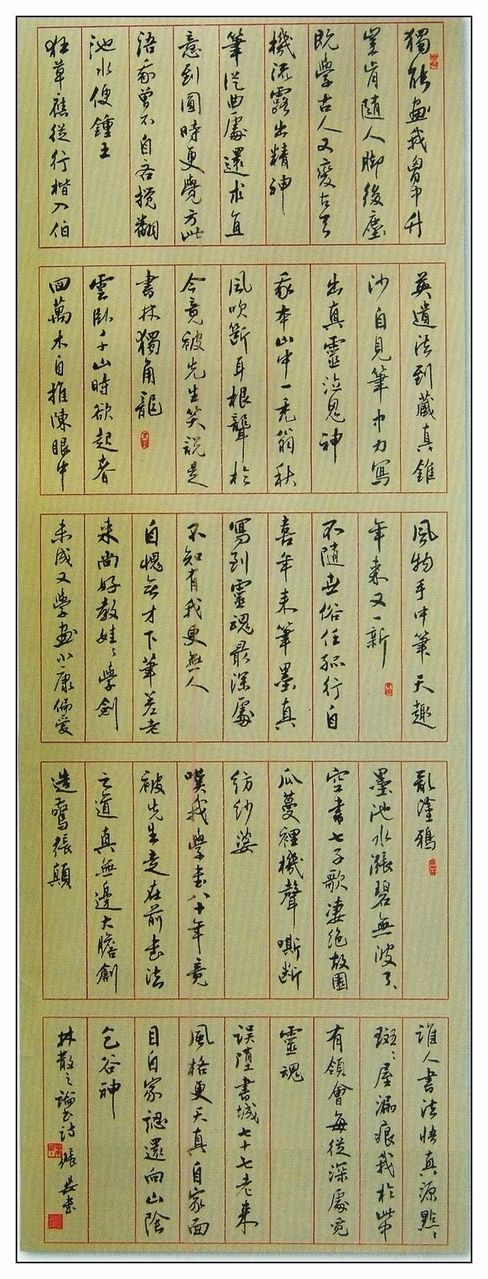 獨能畫我胷中竹
豈肯隨人脚後塵
既學古人又變古天
機流露出精神
筆從曲處還求直
意到圓時更覺方此
語我曾不自吝攪翻
池水便鍾王
狂草應從行楷入伯
英遺法到藏真錐
沙自見筆中力寫
出真靈泣鬼神
我本山中一禿翁秋
風吹斷耳根聾於
今竟被先生笑說是
書林獨角龍
雲卧千山時欲起春
回萬木自推陳眼中
風物手中筆天趣
年來又一新
不隨世俗任孤行自
喜年來筆墨真
寫到靈魂最深處
不知有我更無人
自愧無才下筆差老
來尚好教娃々學劍
未成又學畫小康偏愛
亂塗鴉
墨池水漲碧無波了々
空書七子歌凄絕故園
瓜蔓裡機聲嘶斷
紡紗婆
嘆我學書八十年竟
被先生走在前書法
之道真無邊大膽創
造驚張顛
誰人書法悟真源點々
斑々屋漏痕我於此中
有領會每從深處覓
靈魂
誤墮書城七十七老來
風格更天真自家面
目自家認還向山陰
乞谷神
林散之論書詩 張書